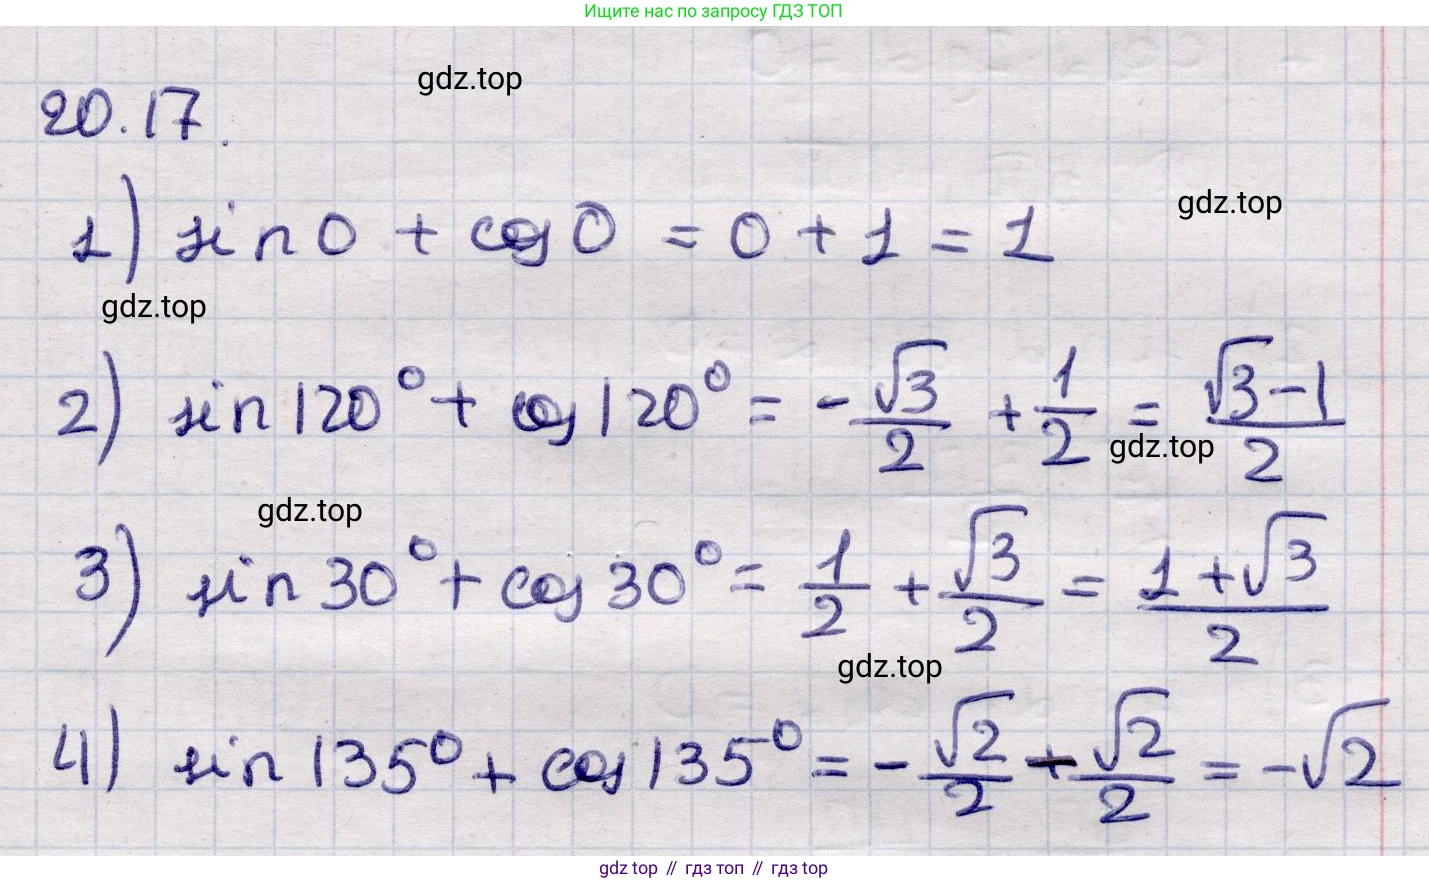 Ищите нас по запросу ГДЗ ТОП
gdz.top
20.17.
gdz.top
1) sin 0 + cos 0 = 0 + 1 = 1
gdz.top
2) sin 120° + cos 120° = - √3/2 + 1/2 = (√3 - 1)/2
gdz.top
gdz.top
3) sin 30° + cos 30° = 1/2 + √3/2 = (1 + √3)/2
gdz.top
4) sin 135° + cos 135° = - √2/2 - √2/2 = - √2
gdz top // гдз топ // gdz top